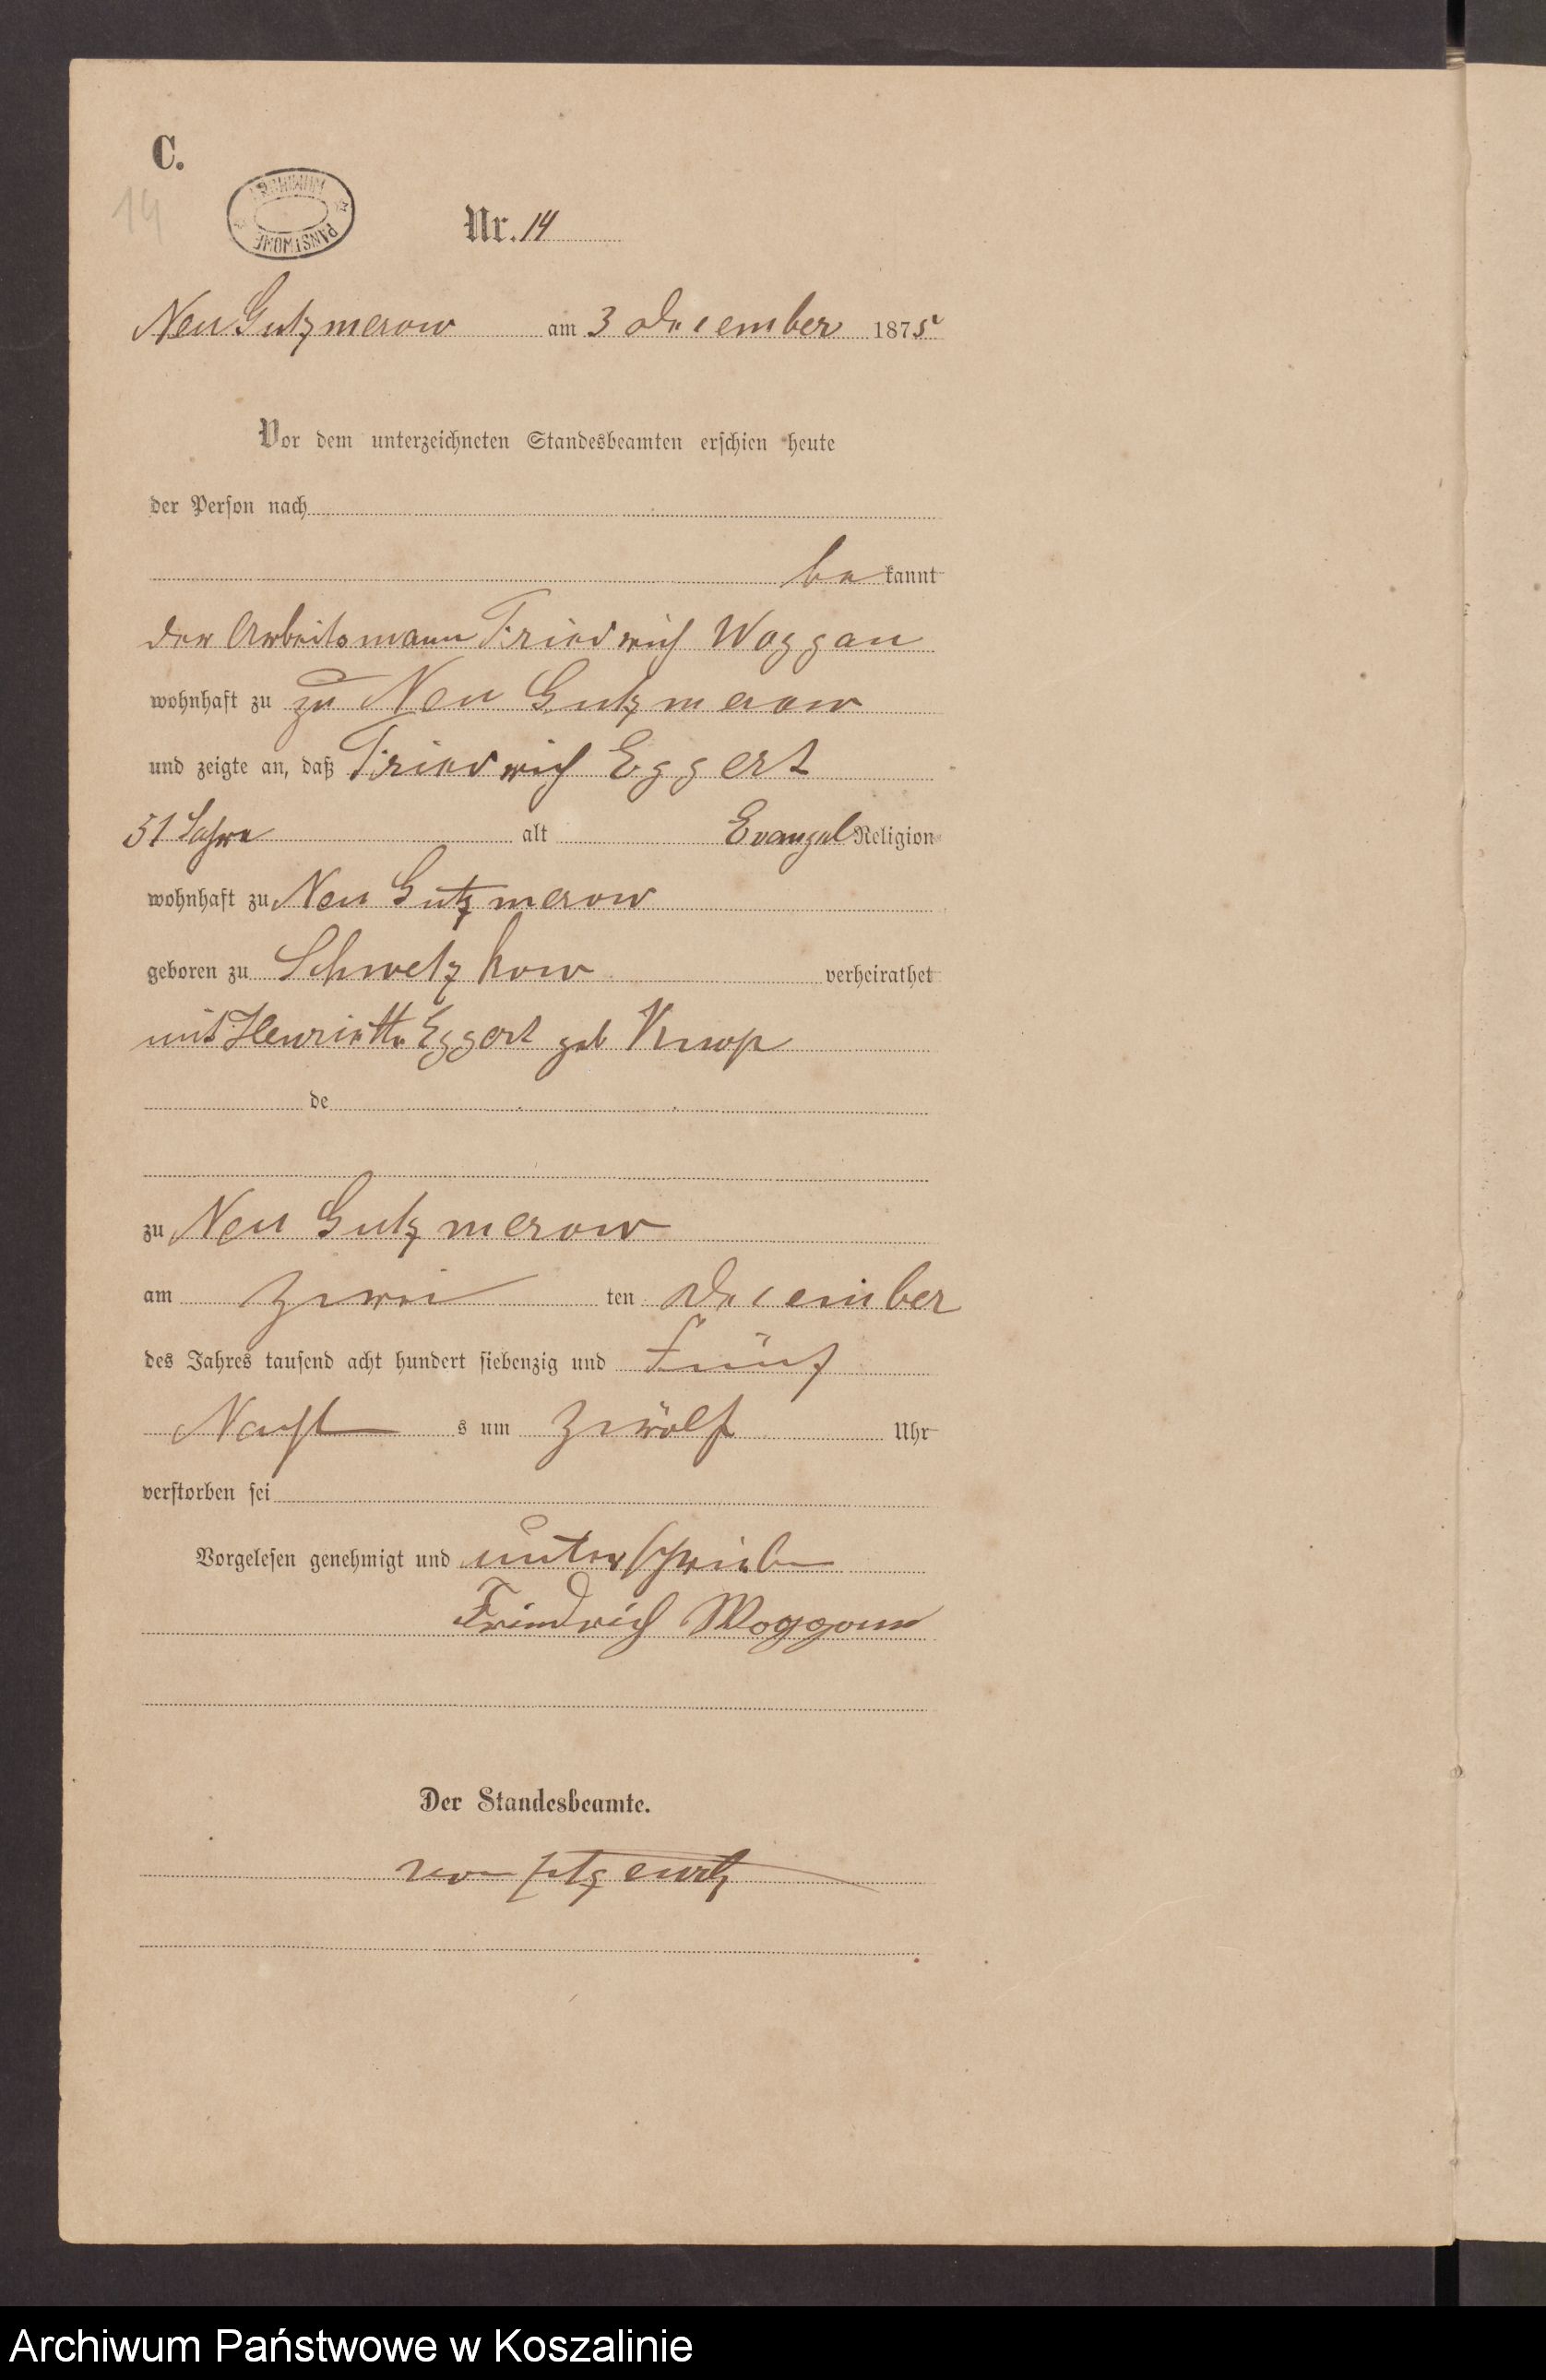 C.
14
ARCHIWUM
PAŃSTWOWE
Nr. 14
Neu Gutzmerow am 3 December 1875
Vor dem unterzeichneten Standesbeamten erschien heute
der Person nach
be kannt
der Arbeitsmann Friedrich Woggan
wohnhaft zu zu Neu Gutzmerow
und zeigte an, daß Friedrich Eggert
51 Jahre alt Evangel Religion
wohnhaft zu Neu Gutzmerow
geboren zu Schwetzkow verheirathet
mit Henriette Eggert geb
de
zu Neu Gutzmerow
am zwei ten December
des Jahres tausend acht hundert siebenzig und Fünf
Nacht s um zwölf Uhr
verstorben sei
Vorgelesen genehmigt und unterschrieben
Friedrich Woggann
Der Standesbeamte.
von
Archiwum Państwowe w Koszalinie